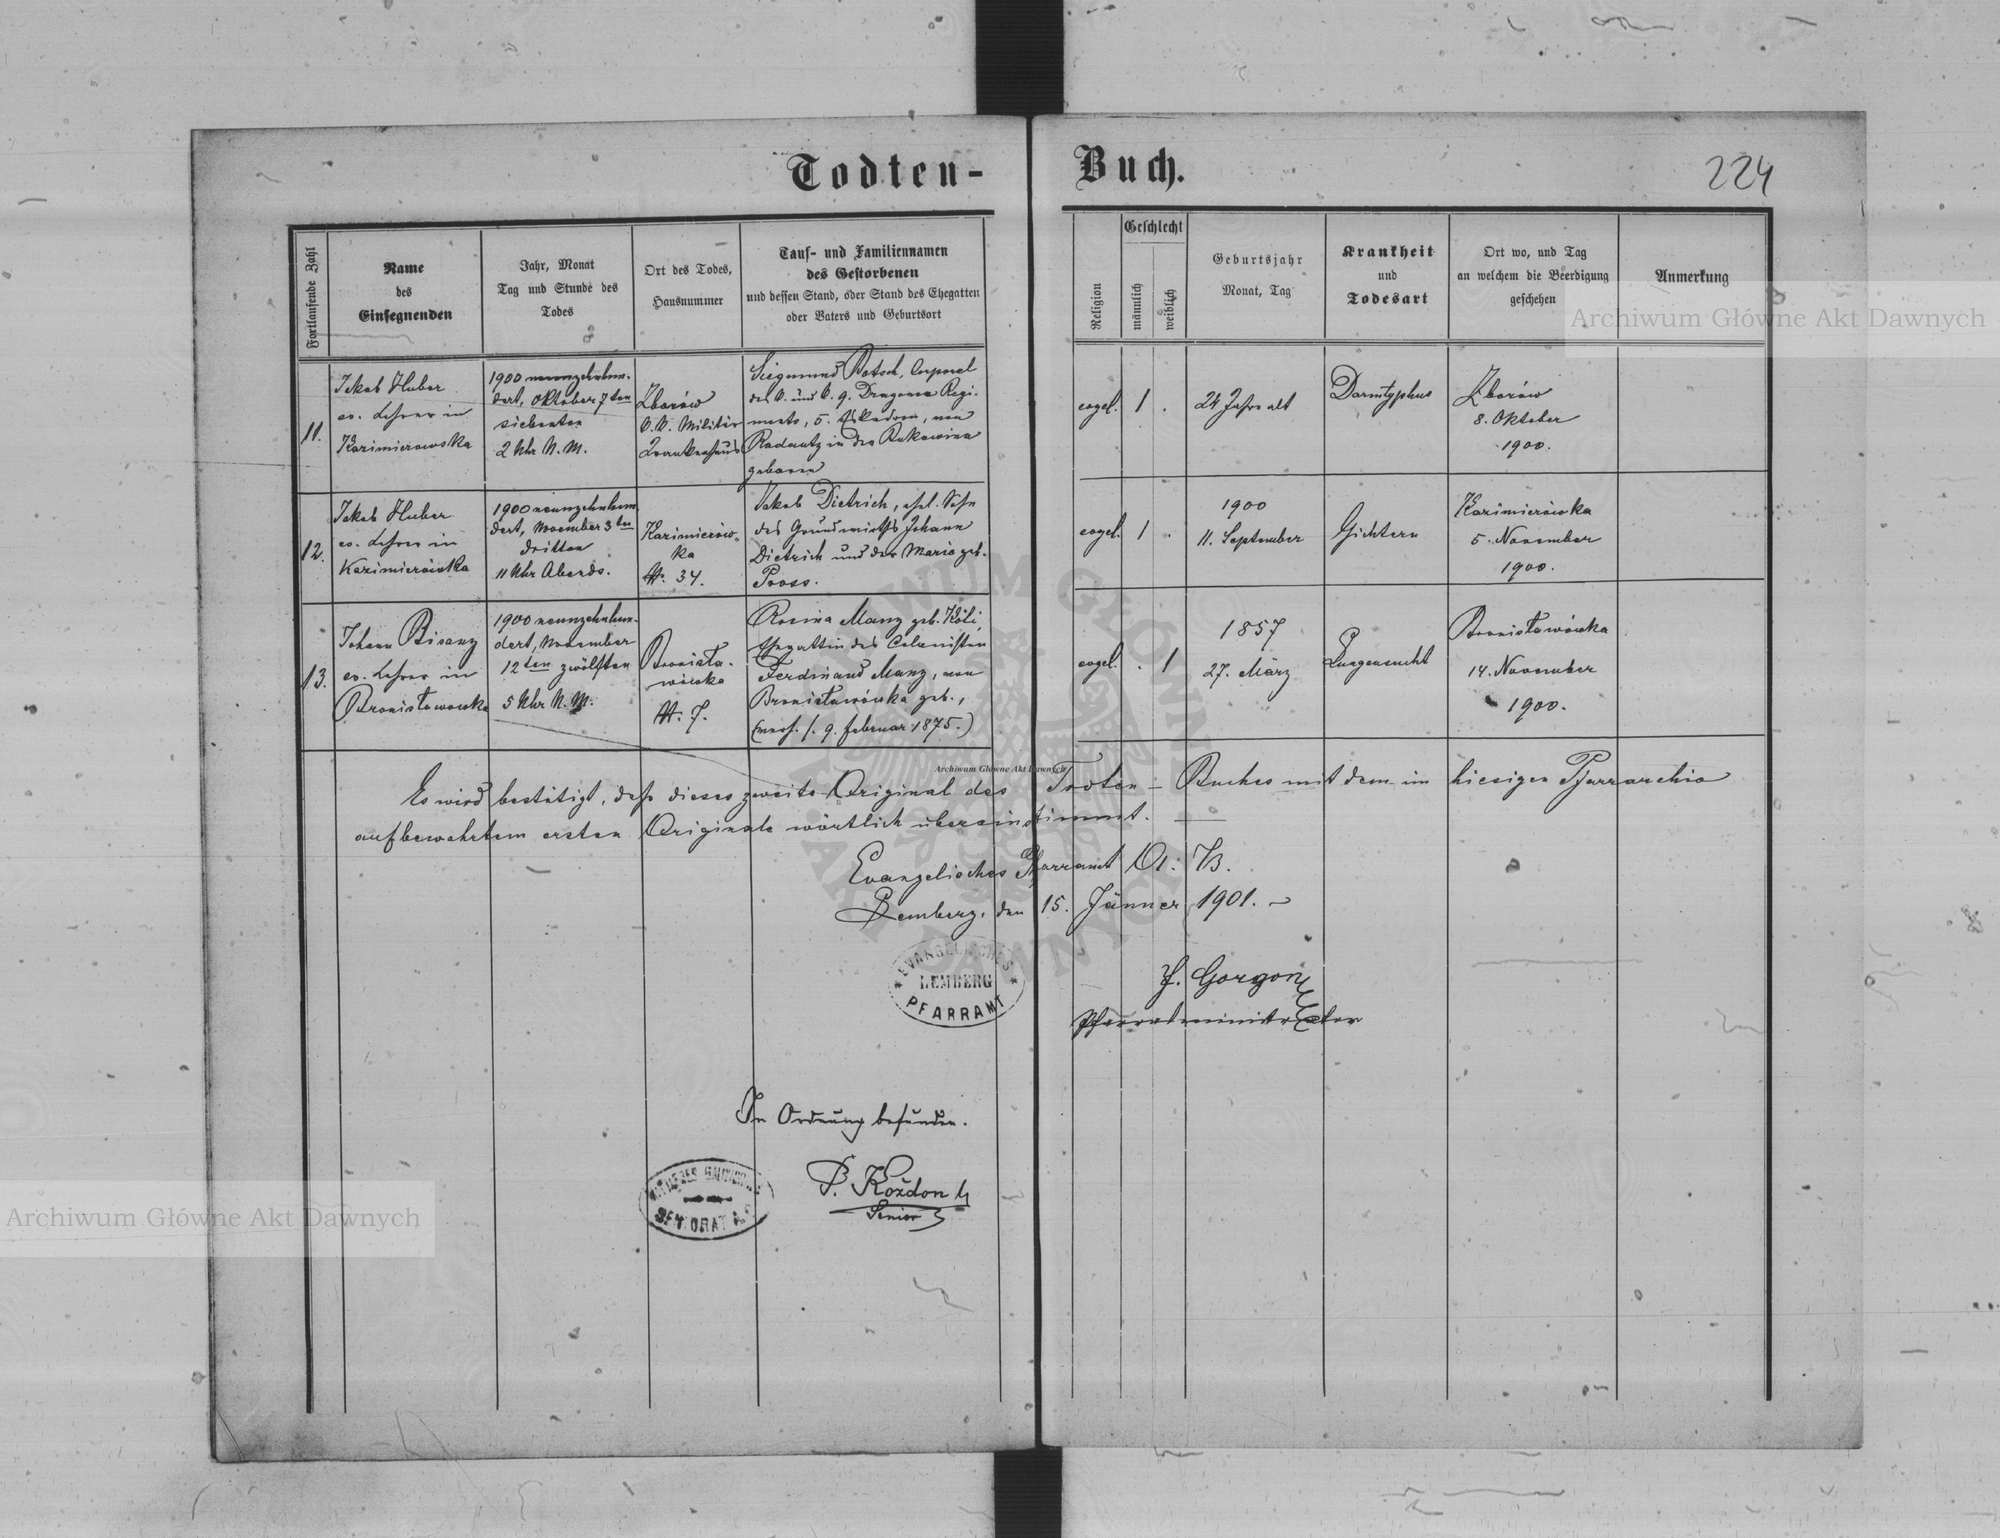 Todten-Buch.
224
Fortlaufende Zahl
Name
des
Einsegnenden
Jahr, Monat
Tag und Stunde des
Todes
Ort des Todes,
Hausnummer
Tauf- und Familiennamen
des Gestorbenen
und dessen Stand, oder Stand des Ehegatten
oder Vaters und Geburtsort
Religion
Geschlecht
männlich
weiblich
Geburtsjahr
Monat, Tag
Krankheit
und
Todesart
Ort wo, und Tag
an welchem die Beerdigung
geschehen
Anmerkung
11.
Jakob Huber
ev. Lehrer in
Kazimierowska
1900 neunzehnhun-
dert, Oktober 7ten
siebenten
2 Uhr N. M.
Zborów
k. k. Militär
Krankenhaus
Siegmund Batsch, Corporal
des k. und k. 9. Dragoner Regi-
ments, 5. Eskadron, von
Radautz in der Bukowina
geboren
evgel.
1
.
24 Jahre alt
Darmtyphus
Zborów
8. Oktober
1900.
12.
Jakob Huber
ev. Lehrer in
Kazimierówka
1900 neunzehnhun-
dert, November 3ten
dritten
11 Uhr Abends.
Kazimierów-
ka
N. 34.
Jakob Dietrich, ehel. Sohn
des Grundwirths Johann
Dietrich und der Maria geb.
Pross.
evgel.
1
.
1900
11. September
Gichtern
Kazimierówka
5. November
1900.
13.
Johann Bisanz
ev. Lehrer in
Bronisławówka
1900 neunzehnhun-
dert, November
12ten zwölften
5 Uhr N. M.
Bronisła-
wówka
N. 7.
Rosina Manz geb. Köli,
Ehegattin des Colonisten
Ferdinand Manz, von
Bronisławówka geb.,
9. Februar 1875.)
evgel.
.
1
1857
27. März
Lungensucht
Bronisławówka
14. November
1900.
Es wird bestätigt, daß dieses zweite Original des Todten-Buches mit dem im hiesigen Pfarrarchiv
aufbewahrtem ersten Originale wörtlich übereinstimmt.
Evangelisches Pfarramt A. B.
Lemberg, den 15. Jänner 1901.
EVANGELISCHES
LEMBERG
PFARRAMT
J. Gorgon
Pfarradministrator
In Ordnung befunden.
SENIORAT A.
P. Kożdon
Senior
Archiwum Główne Akt Dawnych
Archiwum Główne Akt Dawnych
Archiwum Główne Akt Dawnych
ARCHIWUM GŁÓWNE AKT DAWNYCH